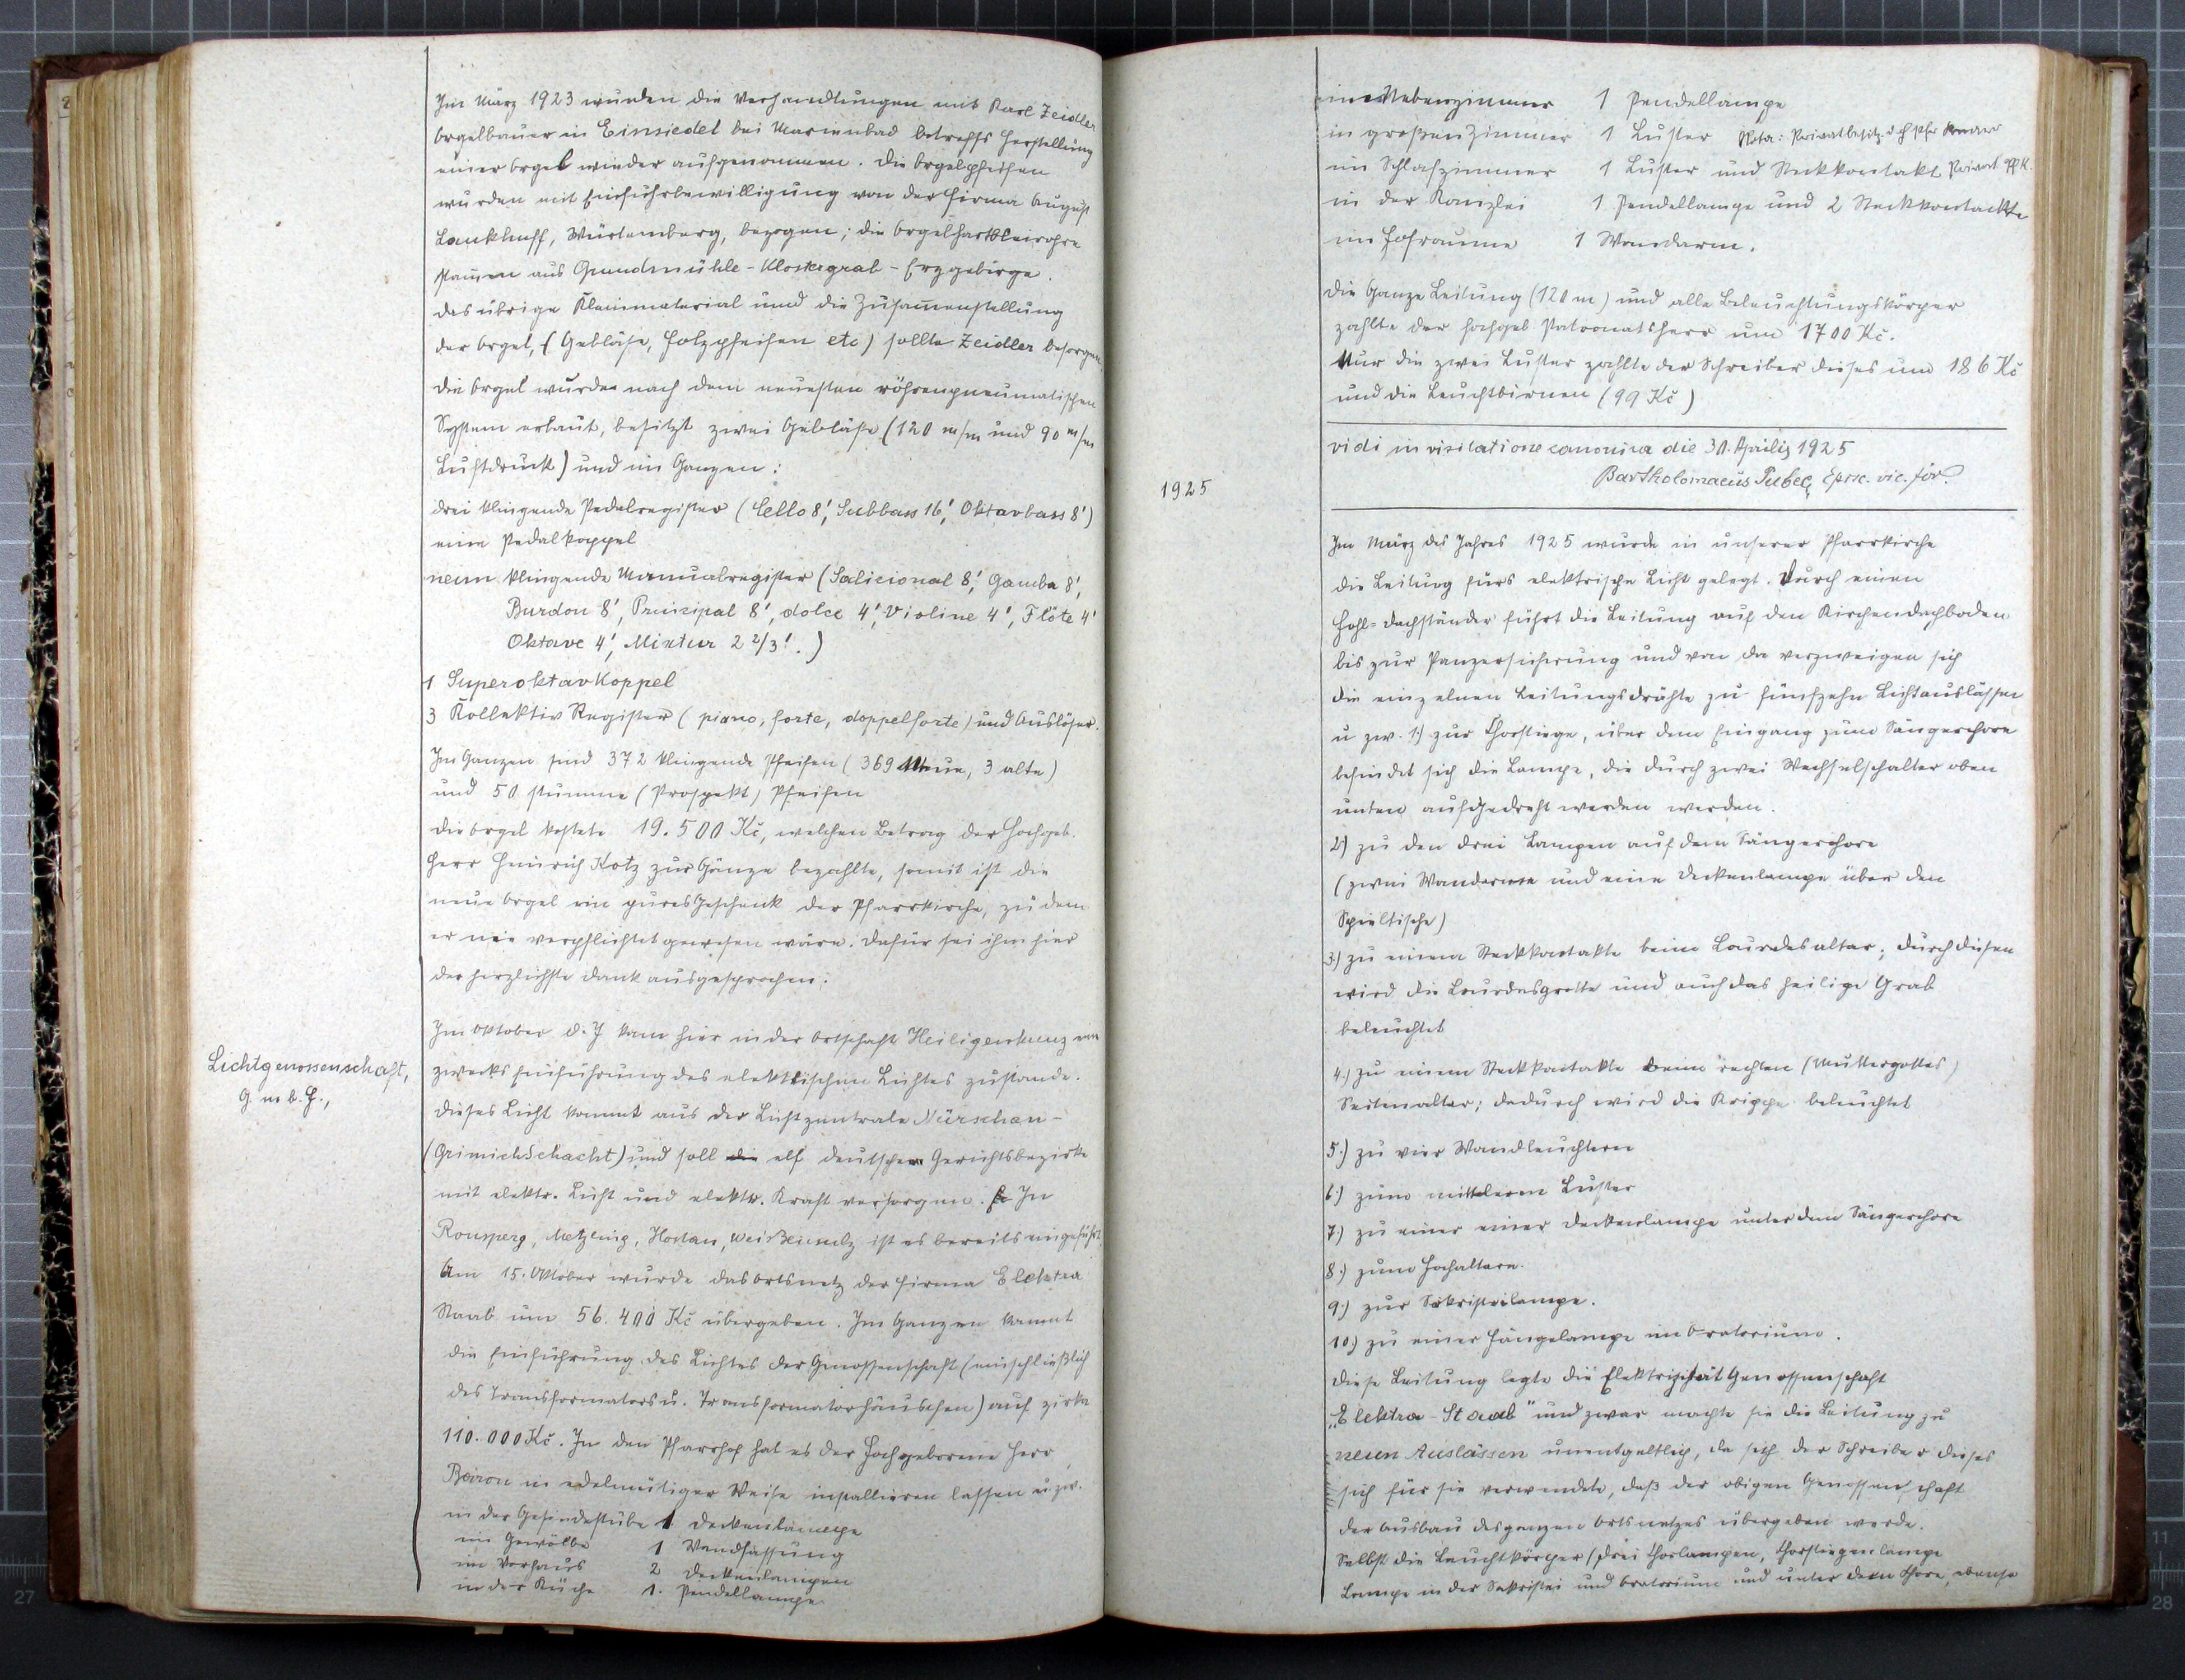 Im März 1923 wurden die Verhandlungen mit Karl Zeidler
Orgelbauer in Einsiedel bei Marienbad betreffs Herstellung
einer Orgel wieder aufgenommen. Die Orgelpfeifen
wurden mit Einfuhrbewilligung von der Firma August
Laukhuff, Würtemberg, bezogen; die Orgelhartbleirohre
stamen aus Grundmühle-Klostergrab-Erzgebirge.
das übrige Kleinmaterial und die Zusamenstellung
der Orgel, (Gebläse, Holzpfeifen etc) sollte Zeidler besorgen.
Die Orgel wurde nach dem neuesten röhrenpneumatischen
System erbaut, besitzt zwei Gebläse (120 m/m und 90 m/m
Luftdruck) und im Ganzen:
drei klingende Pedalregister (Cello 8', Subbass 16', Oktavbass 8')
eine Pedalkoppel
neun klingende Manualregister (Salicional 8', Gamba 8',
Burdon 8', Prinzipal 8', dolce 4', Violine 4', Flöte 4'
Oktave 4', Mixtur 2 2/3'.)
1 Superoktavkoppel
3 Kollektiv Register (piano, forte, doppelforte) und Auslöser.
Im Ganzen sind 372 klingende Pfeifen (369 Neue, 3 alte)
und 50 stumme (Prospekt) Pfeifen
die Orgel kostete 19.500 Kč, welchen Betrag der Hochgeb.
Herr Heinrich Kotz zur Gänze bezahlte, somit ist die
neue Orgel ein pures Geschenk der Pfarrkirche, zu dem
er nie verpflichtet gewesen wäre. Dafür sei ihm hier
der herzlichste Dank ausgesprochen.
Lichtgenossenschaft,
G. m. b. H.,
Im Oktober d. J kam hier in der Ortschaft Heiligenkreuz
zwecks Einführung des elektrischen Lichtes zustande.
Dieses Licht kommt aus der Lichtzentrale Nürschan-
(Grimichschacht) und soll die elf deutschen Gerichtsbezirke
mit elektr. Licht und elektr. Kraft versorgen. In
Ronsperg, Metzling, Hostau, Weißensulz ist es bereits eingeführt.
Am 15. Oktober wurde das Ortsnetz der Firma Elektra
Staab um 56.400 Kč übergeben. Im Ganzen kommt
die Einführung des Lichtes der Genossenschaft (einschließlich
des Transformators u. Transformatorhäuschen) auf zirka
110.000 Kč. In den Pfarrhof hat es der Hochgeborene Herr
Baron in edelmütiger Weise installieren lassen u zw.
in der Gesindestube 1 Deckenlampe
im Gewölbe 1 Wandfassung
im Vorhaus 2 Deckenlampen
in der Küche 1. Pendellampe
im Nebenzimmer 1 Pendellampe
in großen Zimmer 1 Luster Nota: Privatbesitz d
im Schlafzimmer 1 Luster und Steckkontakt Privat
in der Kanzlei 1 Pendellampe und 2 Steckkontackte
im Hofraume 1 Wandarm.
Die Ganze Leitung (120 m) und alle Beleuchtungskörper
zahlte der hochgeb Patronatsherr um 1700 Kč.
Nur die zwei Luster zahlte der Schreiber dieses um 186 Kč
und die Leuchtbirnen (99 Kč)
vidi in visitatione canonica die 30. Aprilis 1925
Bartholomaeus Pubec, Epsc. vic. for.
1925
Im März des Jahres 1925 wurde in unserer Pfarrkirche
die Leitung fürs elektrische Licht gelegt. Durch einen
Hohl-Dachständer führt die Leitung auf den Kirchendachboden
bis zur Panzersicherung und von da verzweigen sich
die einzelnen Leitungsdrähte zu fünfzehn Lichtauslässen
u zw. 1.) zur Chorstiege, über dem Eingang zum Sängerchore
befindet sich die Lampe, die durch zwei Wechselschalter oben
unten aufgedreht werden werden.
2.) zu den drei Lampen auf dem Sängerchore
(zwei Wandarme und eine Deckenlampe über den
Spieltische)
3.) zu einem Steckkontakte beim Lourdesaltar; durch diesen
wird die Lourdesgrotte und auch das heilige Grab
beleuchtet
4.) zu einem Steckkontakte beim rechten (Muttergottes)
Seitenaltar; dadurch wird die Krippe beleuchtet
5.) zu vier Wandleuchtern
6.) zum mittleren Luster
7.) zu einer einer Deckenlampe unter dem Sängerchore
8.) zum Hochaltare.
9.) zur Sakristeilampe.
10.) zu einer Hängelampe im Oratorium.
Diese Leitung legte die Elektrizität Genossenschaft
„Elektra-Staab" und zwar machte sie die Leitung zu
neun Auslässen unentgeltlich, da sich der Schreiber dieses
sich für sie verwendete, daß der obigen Genossenschaft
der Ausbau des ganzen Ortsnetzes übergeben werde.
Selbst die Leuchtkörper (drei Chorlampen, Chorstiegenlampe
Lampe in der Sakristei und Oratorium und unter dem Chore, ebenso